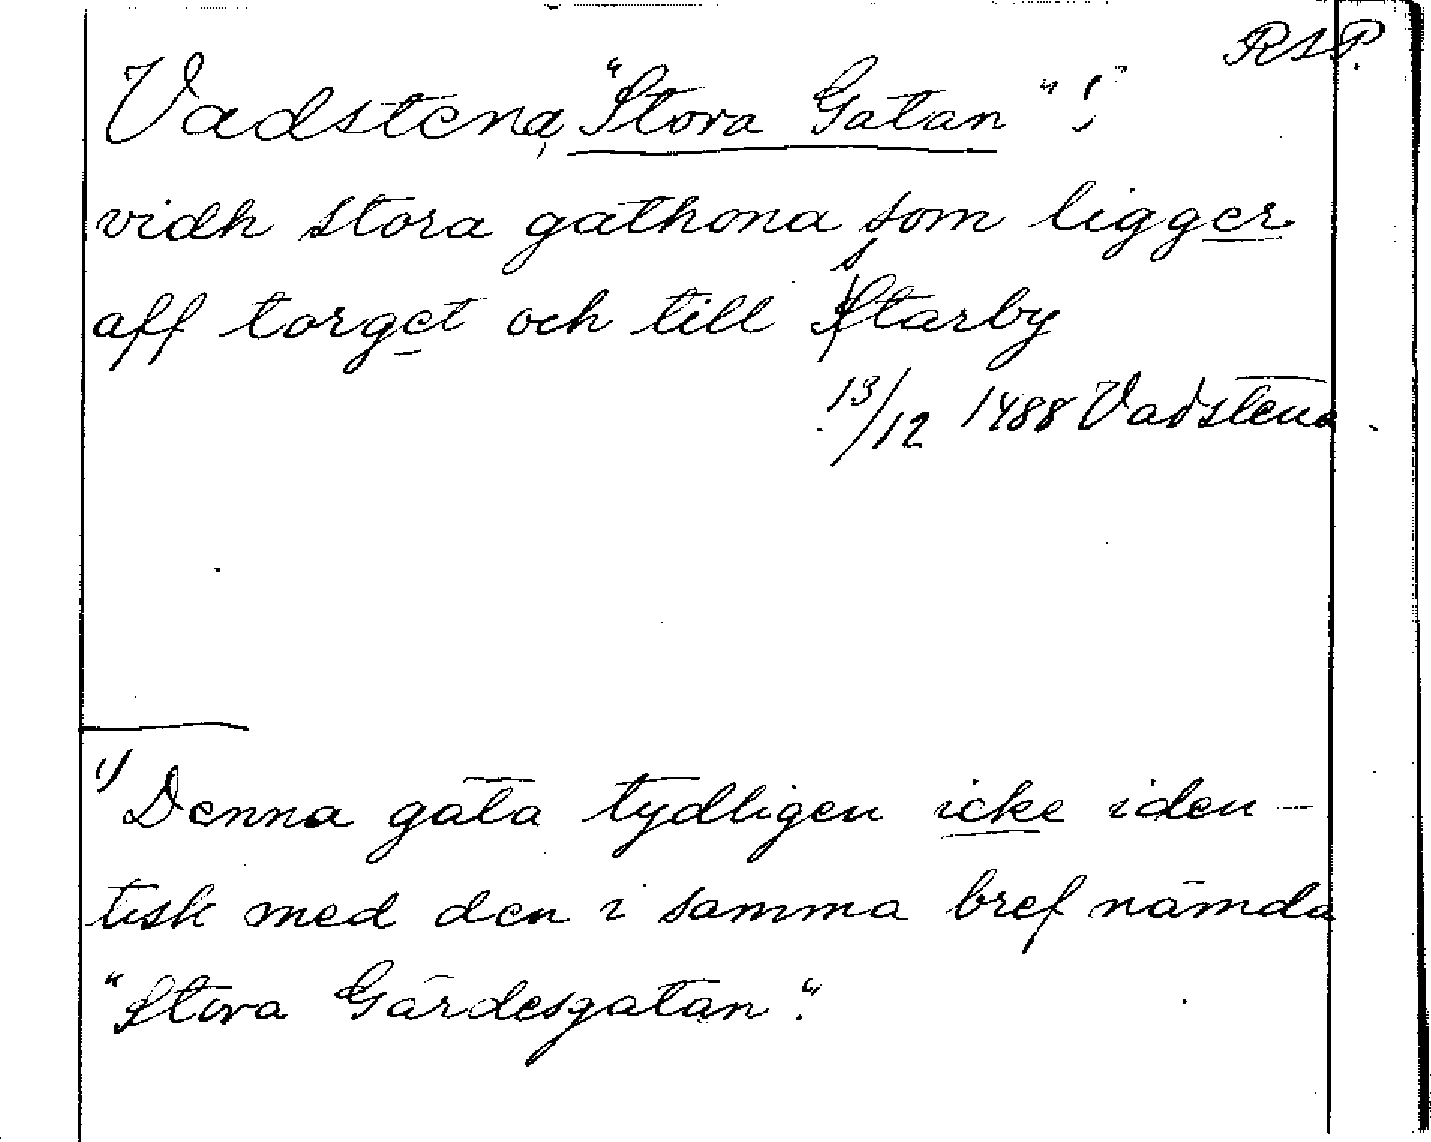 RAP.
Vadstena, "Stora Gatan" ¹⁾
vidh stora gathona som ligger
aff torget och till starby
13/12 1488 Vadstena.
¹⁾ Denna gata tydligen icke iden-
tisk med den i samma bref nämda
"Stora Gärdesgatan".